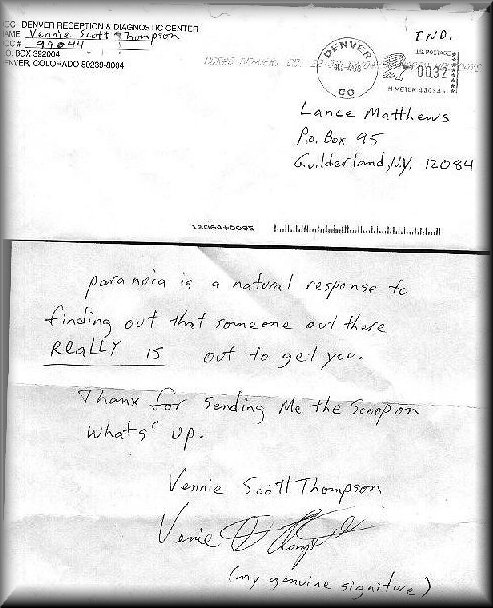 DENVER RECEPTION & DIAGNOSTIC CENTER
NAME Vennie Scott Thompson
P.O. BOX 392004
DENVER, COLORADO 80239-8004
IND.
DENVER
CO
US POSTAGE
0032
Lance Matthews
P.o. Box 95
Guilderland, NY. 12084
paranoia is a natural response to
finding out that someone out there
REALLY is out to get you.
Thanx for sending Me the Scoop on
whats' up.
Vennie Scott Thompson
(my genuine signiture)